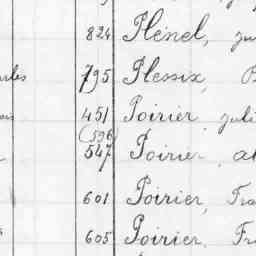 824 Plénel,
795 Plessix,
451 Poirier
(596)
547 Poirier,
601 Poirier,
605 Poirier,